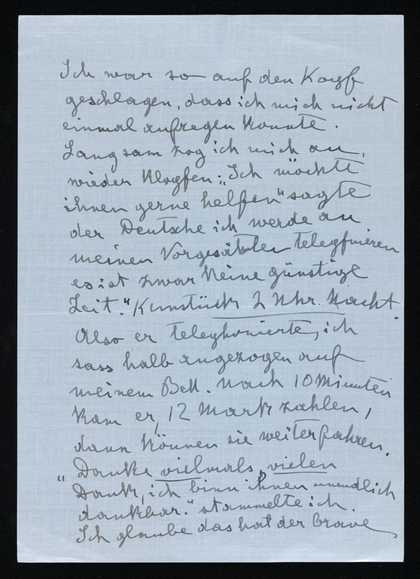 Ich war so auf den Kopf
geschlagen, dass ich mich nicht
einmal aufregen konnte.
Langsam zog ich mich an,
wieder Klopfen: „Ich möchte
ihnen gerne helfen" sagte
der Deutsche ich werde an
meinen Vorgesätzten telegfonieren
es ist zwar keine günstige
Zeit." Kunstück 2 Uhr. Nacht.
Also er telephonierte, ich
sass halb angezogen auf
meinem Bett. Nach 10 Minuten
kam er, 12 Mark zahlen,
dann können sie weiterfahren.
„Danke vielmals, vielen
Dank, ich binn ihnen unendlich
dankbar." stammelte ich.
Ich glaube das hat der brave